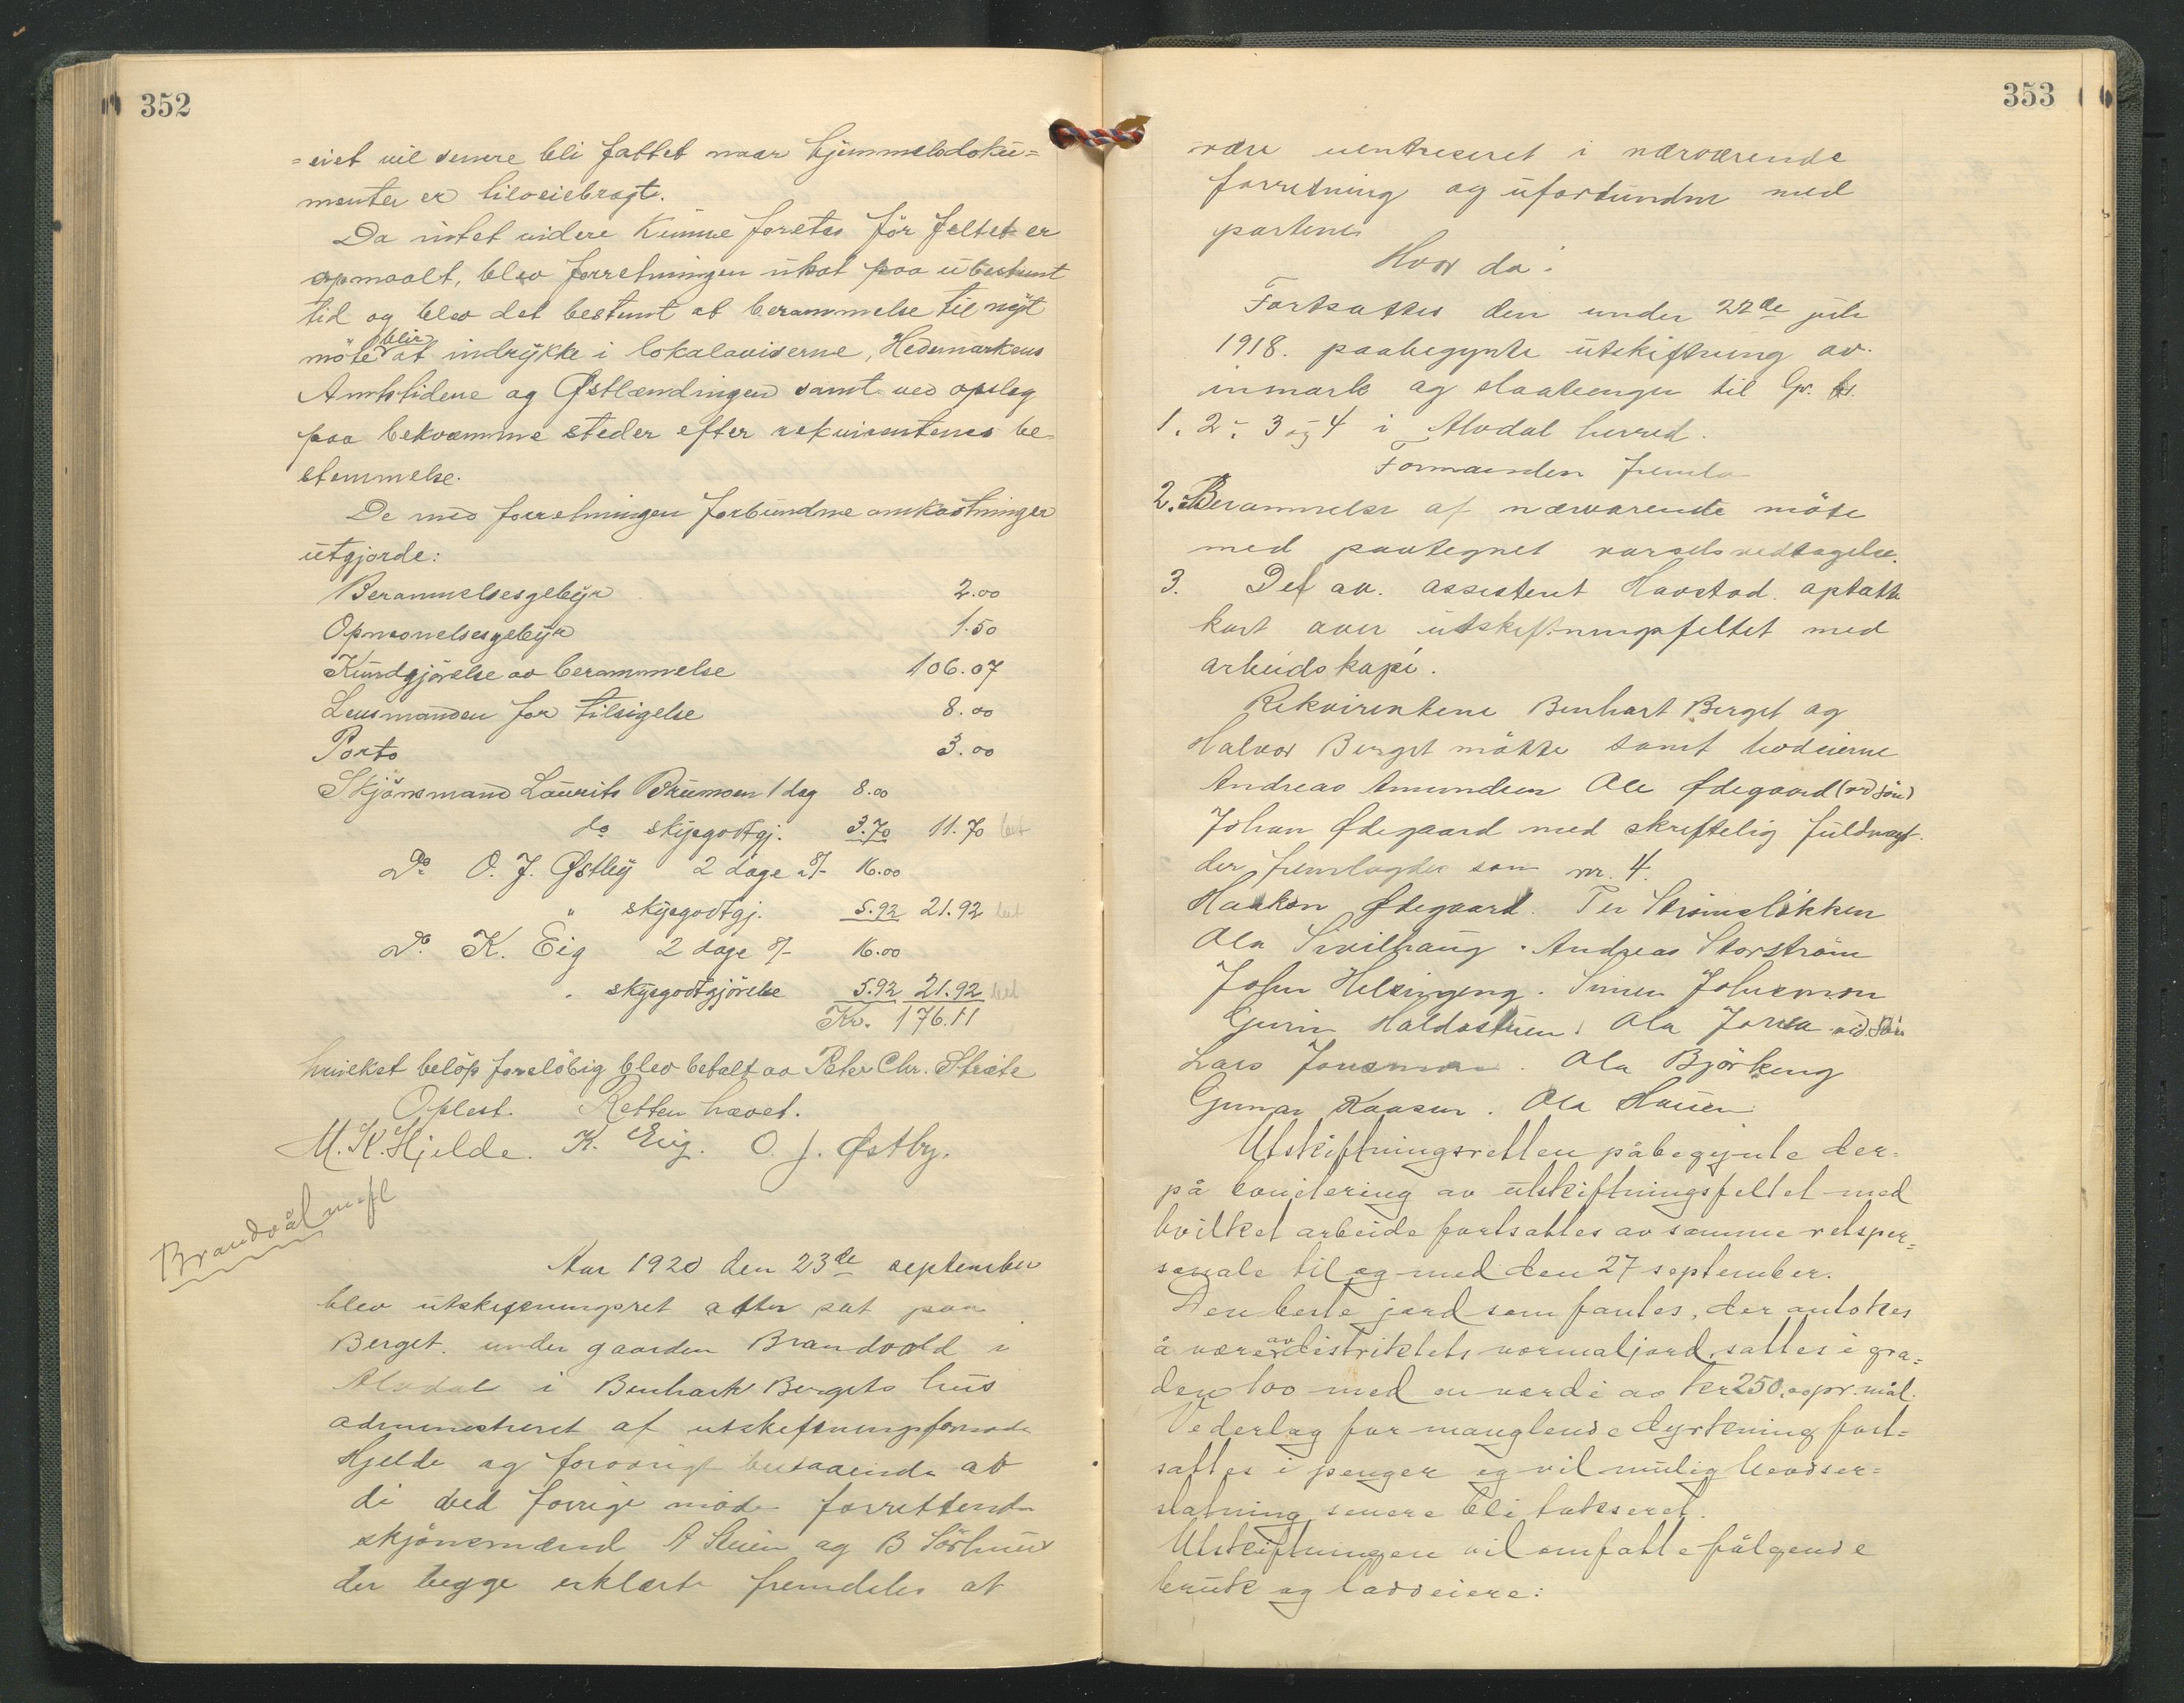 352
=eiet vil senere bli fattet naar hjemmelsdoku=
menter er tilveiebragt.
Da intet videre kunne foretas før feltet er
opmaalt, blev forretningen utsat paa ubestemt
tid og blev det bestemt at berammelse til nyt
møte blir at indrykke i lokalaviserne, Hedemarkens
Amtstidene og Østlændingen samt ved opslag
paa bekvæmme steder efter rekvirentenes be=
stemmelse.
De med forretningen forbundne omkostninger
utgjorde:
Berammelsesgebyr 2.00
Opnevnelsesgebyr 1.50
Kundgjørelse av berammelse 106.07
Lensmanden for tilsigelse 8.00
Porto 3.00
Skjønsmand Laurits 1 dag 8.00
do skysgodtgj. 3.70 11.70 bet
Do O. J. Østby 2 dage 8/- 16.00
" skysgodtgj. 5.92 21.92 bet
Do K. Eig 2 dage 8/- 16.00
" skysgodtgjørelse 5.92 21.92 bet
Kr. 176.11
hvilket beløp foreløbig blev betalt av Peter Chr. Strete
Oplest. Retten hævet.
M. K. Hjelde. K. Eig. O. J. Østby.
Brandvål m. fl.
Aar 1920 den 23de september
blev utskiftningsret atter sat paa
Berget under gaarden Brandvold i
Alvdal i Benhart Bergets hus
administreret af utskiftningsformand
Hjelde og forøvrigt bestaaende av
de ved forrige møde forrettende
skjønsmænd A Steien og B Sørhuus
der begge erklærte fremdeles at
353
være uentreseret i nærværende
forretning og uforbundne med
partene
Hvor da:
Fortsattes den under 22de juli
1918. paabegynte utskiftning av
inmark og slaattenger til Gr. Nr.
1, 2, 3 og 4 i Alvdal herred.
Formanden fremla
2. Berammelse af nærværende møte
med paategnet varselsvedtagelse.
3. Det av assistent Havstad optatte
kart over utskiftningsfeltet med
arbeidskopi.
Rekvirentene Benhart Berget og
Halvor Berget møtte samt lodeierne
Andreas Amundsen Ole Ødegaard (ved søn)
Johan Ødegaard med skriftelig fuldmagt.
der fremlagdes som nr. 4.
Haakon Ødegaard. Per Strømsløkken
Ola Sivilhaug. Andreas Storstrøm
John Helsingeng. Simen Johnsmoen
Gunn Haldostuen. Ola Jorea ved søn
Lars Jonsmoen. Ola Bjørkeng
Gunnar Kaasen. Ola Hauen
Utskiftningsretten påbegynte der=
på bonitering av utskiftningsfeltet med
hvilket arbeide fortsattes av samme retsper=
sonale til og med den 27 september.
Den beste jord som fantes, der antokes
å være av distriktets normaljord, sattes i gra=
den 100 med en verdi av kr 250.00 pr. mål.
Vederlag for manglende dyrkning fast=
sattes i penger og vil mulig hevdser=
statning senere bli takseret.
Utskiftningen vil omfatte følgende
bruk og laddeiere: